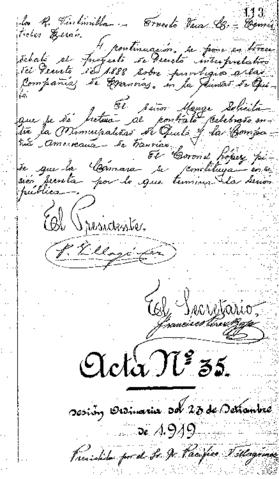 113
los R. Tinbinilla — Ernesto Vera L. —
A continuación, se pone en tercer
debate el proyecto de Decreto interpretativo
del Decreto de 1888 sobre privilegio a las
Compañías de Tranvías, en la Ciudad de Qui
El señor Monge solicita
que se dé lectura al contrato celebrado en
tre la Municipalidad de Quito y la Compa
ñía americana de Tranvías.
El Coronel López pi
de que la Cámara se constituya en se
sión secreta por lo que termina la sesión
pública.
El Presidente.
El Secretario,
Francisco
Acta Nº 35.
Sesión Ordinaria del 23 de Setiembre
de 1919
Presidida por el Sr. D. Pacífico Villagómez